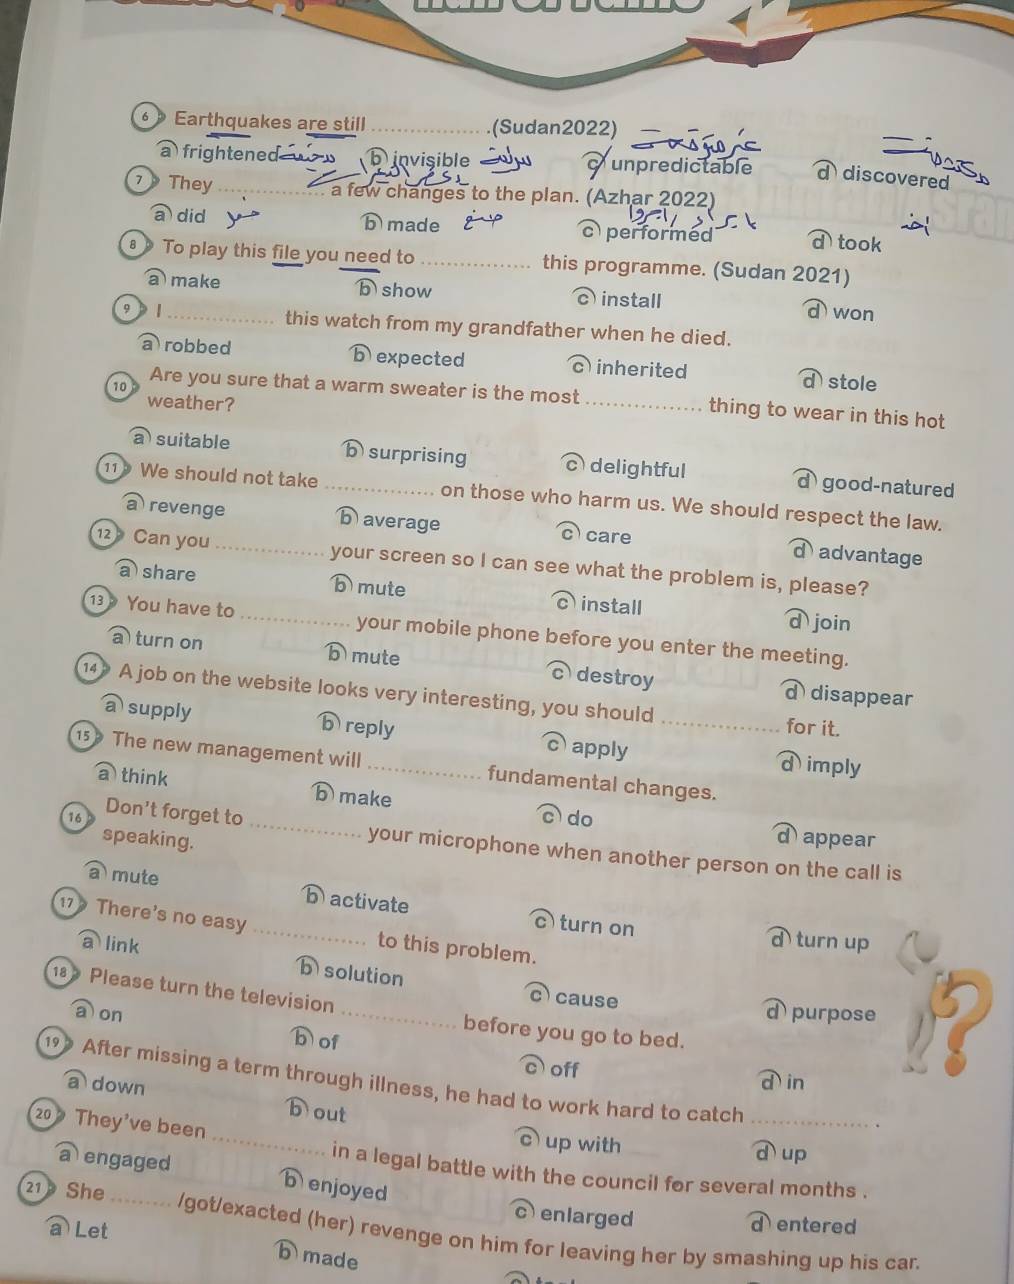 6 Earthquakes are still ................ .(Sudan2022)
a frightened b invisible c unpredictable d discovered
7 They ................ a few changes to the plan. (Azhar 2022)
a did b made c performed d took
8 To play this file you need to ................ this programme. (Sudan 2021)
a make b show c install d won
9 I ................ this watch from my grandfather when he died.
a robbed b expected c inherited d stole
10 Are you sure that a warm sweater is the most ................ thing to wear in this hot
weather?
a suitable b surprising c delightful d good-natured
11 We should not take ................ on those who harm us. We should respect the law.
a revenge b average c care d advantage
12 Can you ................ your screen so I can see what the problem is, please?
a share b mute c install d join
13 You have to ................ your mobile phone before you enter the meeting.
a turn on b mute c destroy d disappear
14 A job on the website looks very interesting, you should ................ for it.
a supply b reply c apply d imply
15 The new management will ................ fundamental changes.
a think b make c do d appear
16 Don't forget to ................ your microphone when another person on the call is
speaking.
a mute b activate c turn on d turn up
17 There's no easy ................ to this problem.
a link b solution c cause d purpose
18 Please turn the television ................ before you go to bed.
a on b of c off d in
19 After missing a term through illness, he had to work hard to catch ................ .
a down b out c up with d up
20 They've been ................ in a legal battle with the council for several months .
a engaged b enjoyed c enlarged d entered
21 She ......... /got/exacted (her) revenge on him for leaving her by smashing up his car.
a Let b made